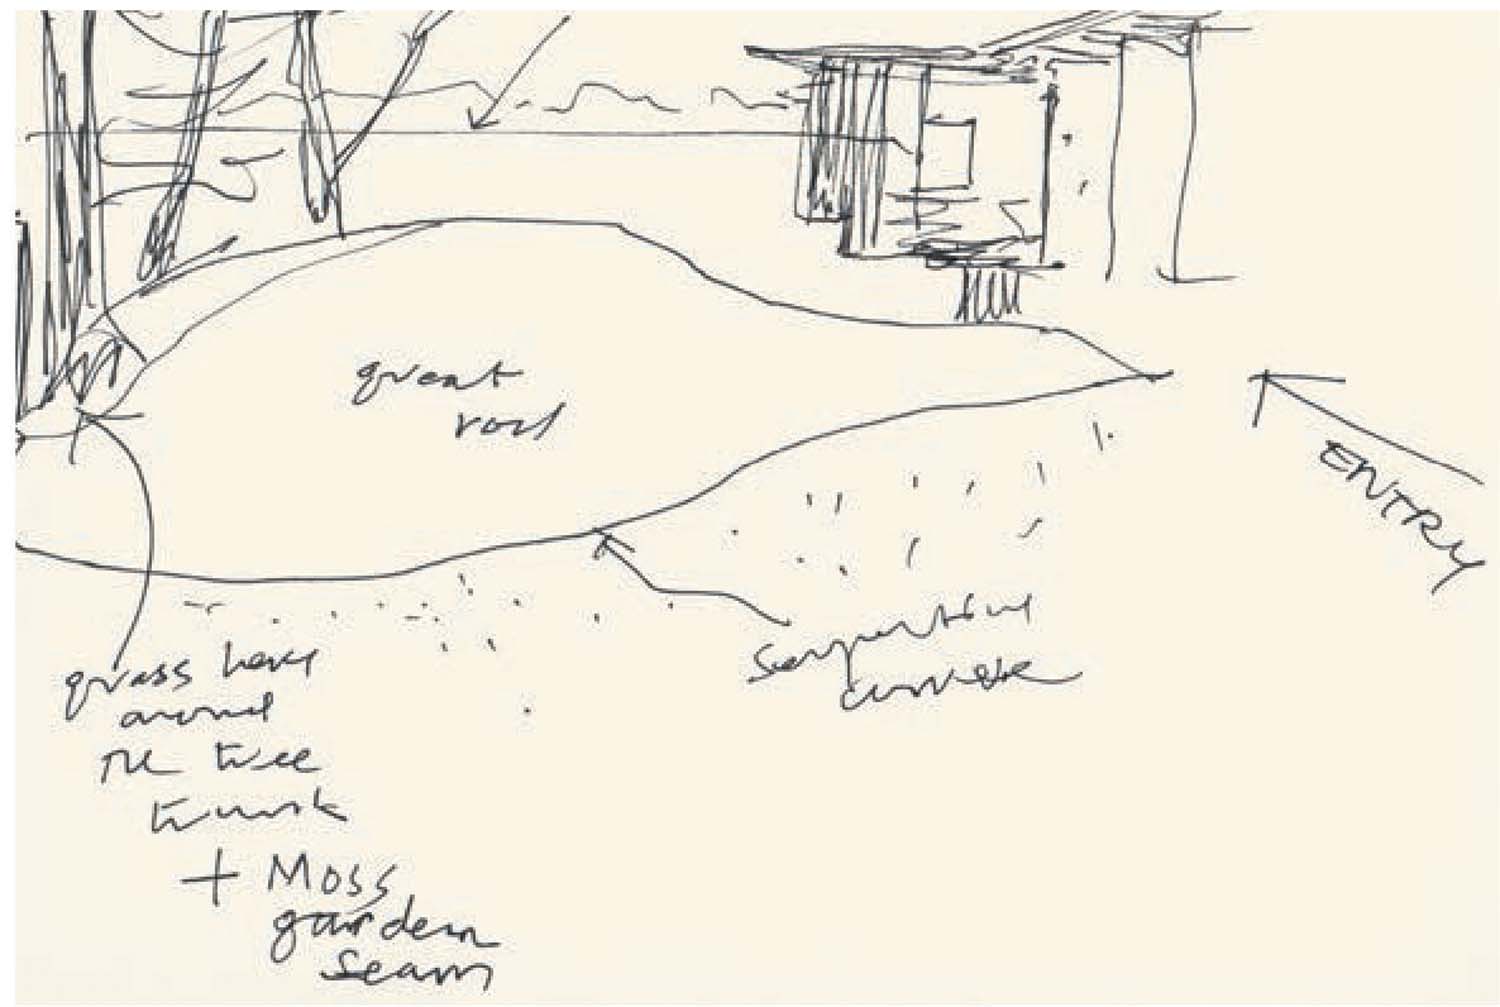 great
ENTRY
Serpentine
grass here
around
the tree
trunk
+ Moss
garden
seam